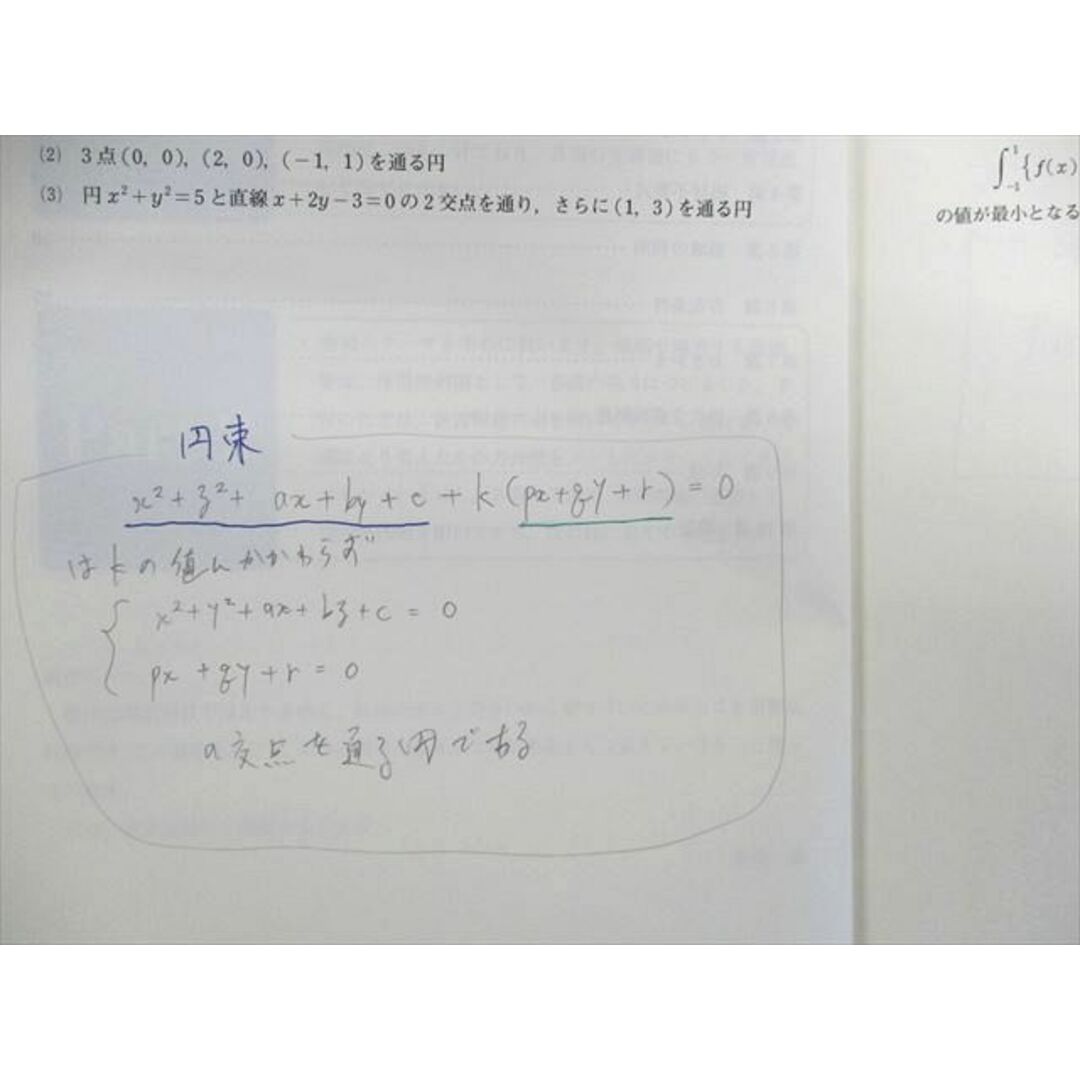 (2) 3点(0, 0), (2, 0), (-1, 1)を通る円
(3) 円x²+y²=5と直線x+2y-3=0の2交点を通り，さらに(1, 3)を通る円
円束
x²+y²+ ax+by+c+k(px+qy+r)=0
はkの値にかかわらず
x²+y²+ax+by+c=0
px+qy+r=0
の交点を通る円である
∫₋₁¹{f(x)
の値が最小となる